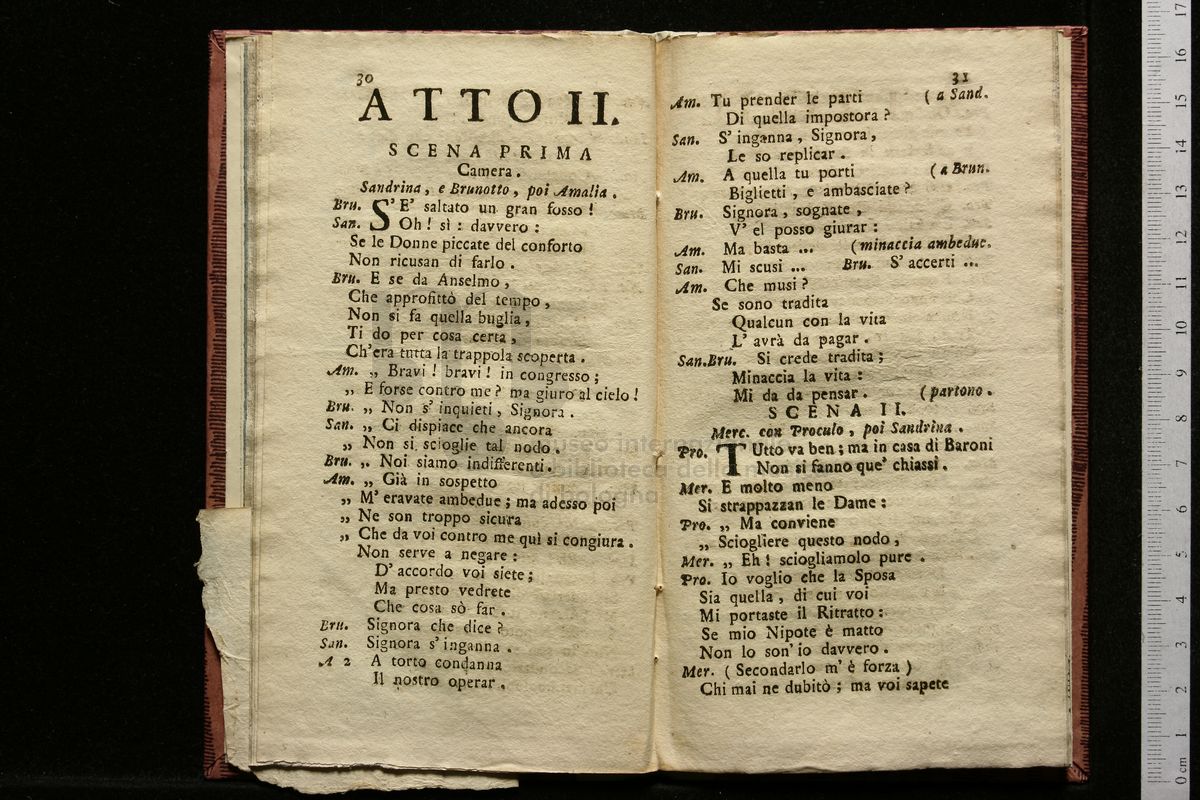 30
ATTO II.
SCENA PRIMA
Camera.
Sandrina, e Brunotto, poi Amalia.
Bru. S'E' saltato un gran fosso!
San. Oh! sì: davvero:
Se le Donne piccate del conforto
Non ricusan di farlo.
Bru. E se da Anselmo,
Che approfittò del tempo,
Non si fa quella buglia,
Ti do per cosa certa,
Ch'era tutta la trappola scoperta.
Am. „ Bravi! bravi! in congresso;
„ E forse contro me? ma giuro al cielo!
Bru. „ Non s'inquieti, Signora.
San. „ Ci dispiace che ancora
„ Non si scioglie tal nodo.
Bru. „ Noi siamo indifferenti.
Am. „ Già in sospetto
„ M'eravate ambedue; ma adesso poi
„ Ne son troppo sicura
„ Che da voi contro me quì si congiura.
Non serve a negare:
D'accordo voi siete;
Ma presto vedrete
Che cosa sò far.
Bru. Signora che dice?
San. Signora s'inganna.
A 2 A torto condanna
Il nostro operar.
31
Am. Tu prender le parti (a Sand.
Di quella impostora?
San. S'inganna, Signora,
Le so replicar.
Am. A quella tu porti (a Brun.
Biglietti, e ambasciate?
Bru. Signora, sognate,
V'el posso giurar:
Am. Ma basta ... (minaccia ambedue.
San. Mi scusi ... Bru. S'accerti ...
Am. Che musi?
Se sono tradita
Qualcun con la vita
L'avrà da pagar.
San.Bru. Si crede tradita;
Minaccia la vita:
Mi da da pensar. (partono.
SCENA II.
Merc. con Proculo, poi Sandrina.
Pro. TUtto va ben; ma in casa di Baroni
Non si fanno que' chiassi.
Mer. E molto meno
Si strappazzan le Dame:
Pro. „ Ma conviene
„ Sciogliere questo nodo,
Mer. „ Eh! sciogliamolo pure.
Pro. Io voglio che la Sposa
Sia quella, di cui voi
Mi portaste il Ritratto:
Se mio Nipote è matto
Non lo son'io davvero.
Mer. (Secondarlo m'è forza)
Chi mai ne dubitò; ma voi sapete